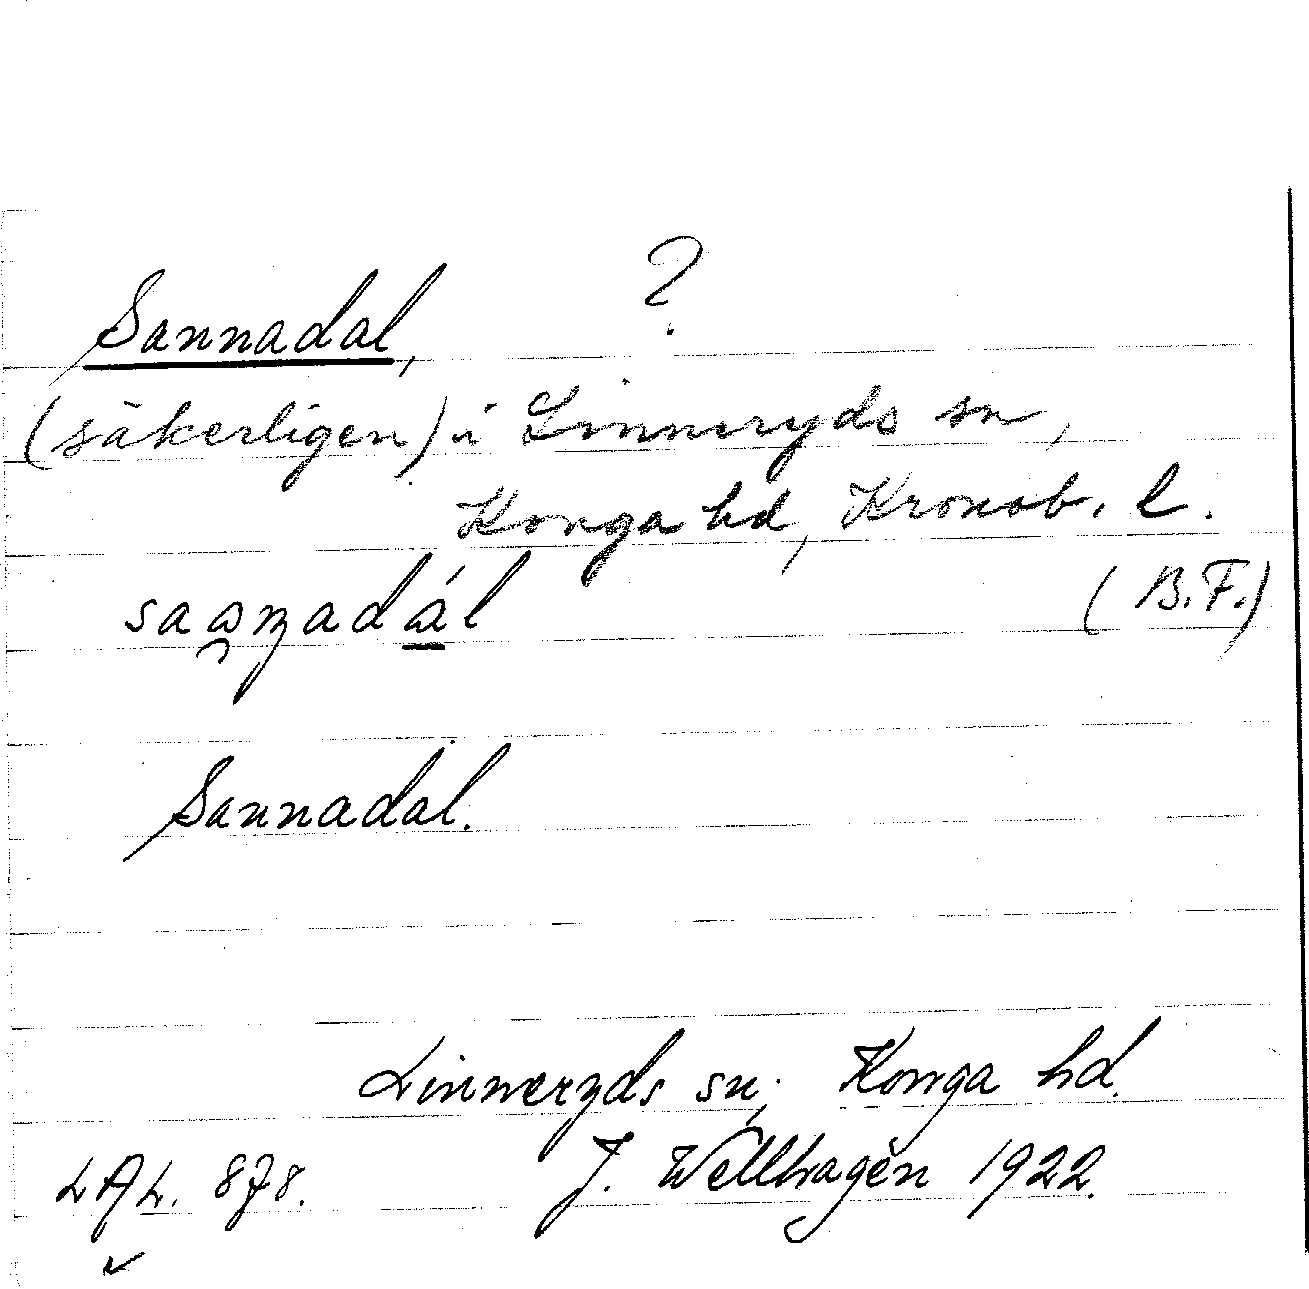 ?
Sannadal,
(säkerligen) i Linneryds sn,
Konga hd, Kronob. l.
(B.F.)
Sannadal.
Linneryds sn; Konga hd.
LAL. 878. J. Wellhagen 1922.